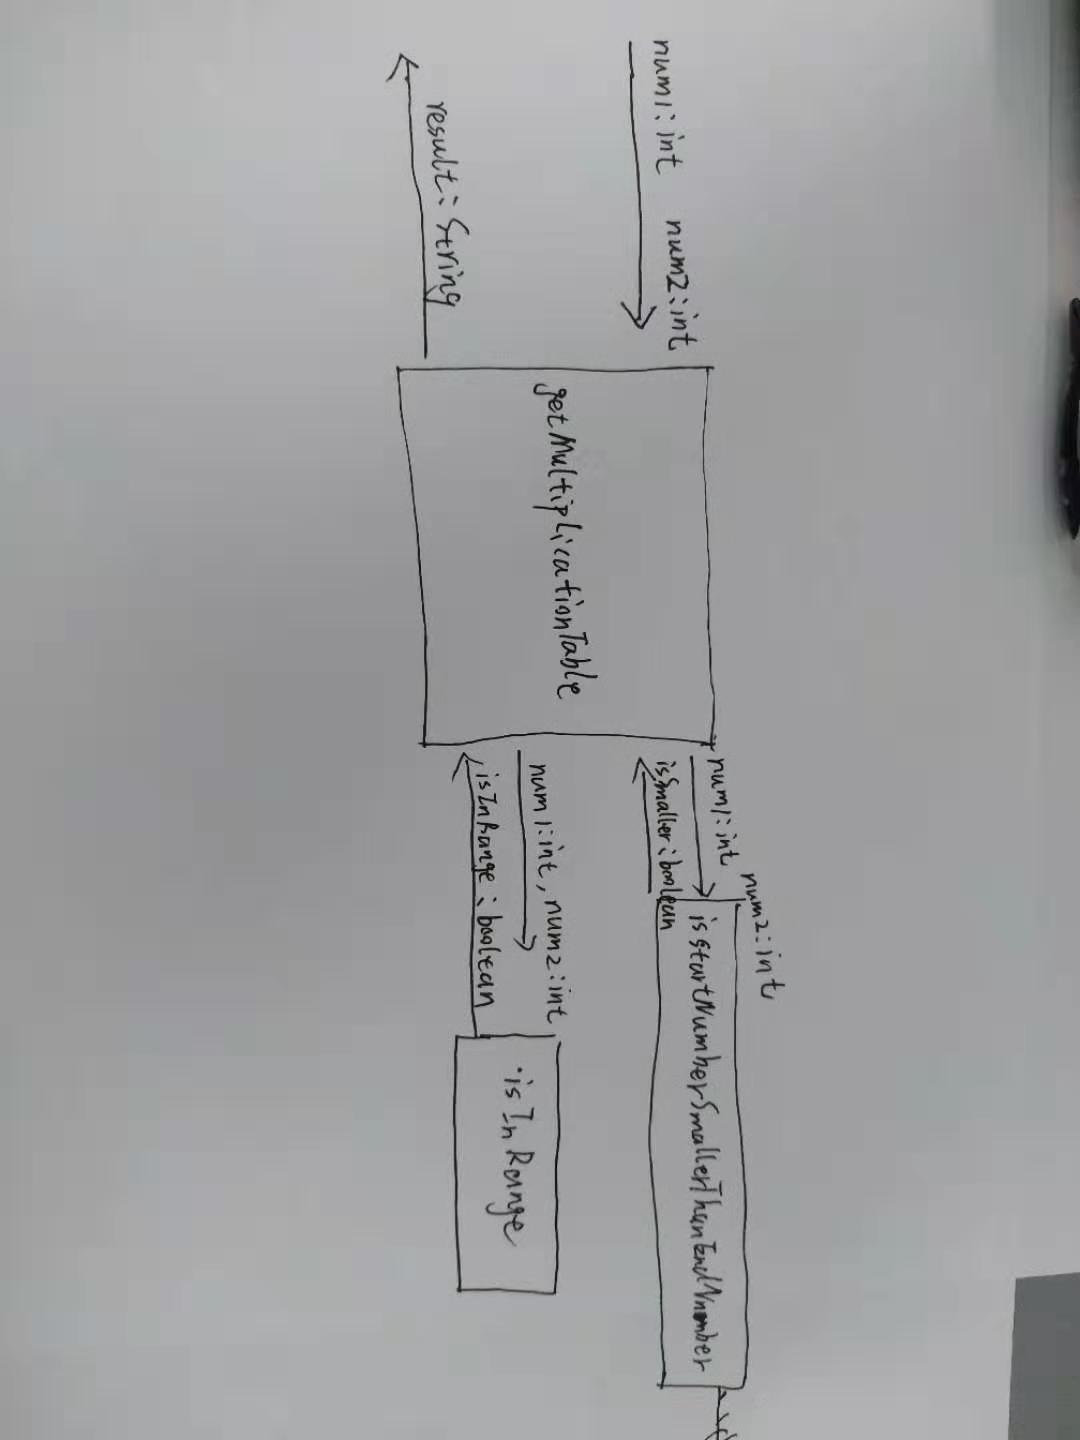 num1:int num2:int
result:String
getMultiplicationTable
num1:int num2:int
isSmaller:boolean
isStartNumberSmallerThanEndNumber
num1:int, num2:int
isInRange:boolean
isInRange